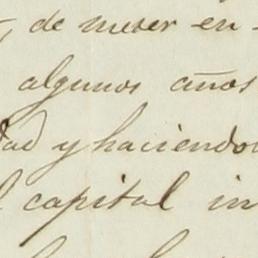 , de meter en
algunos años
dad y haciendo
l capital in